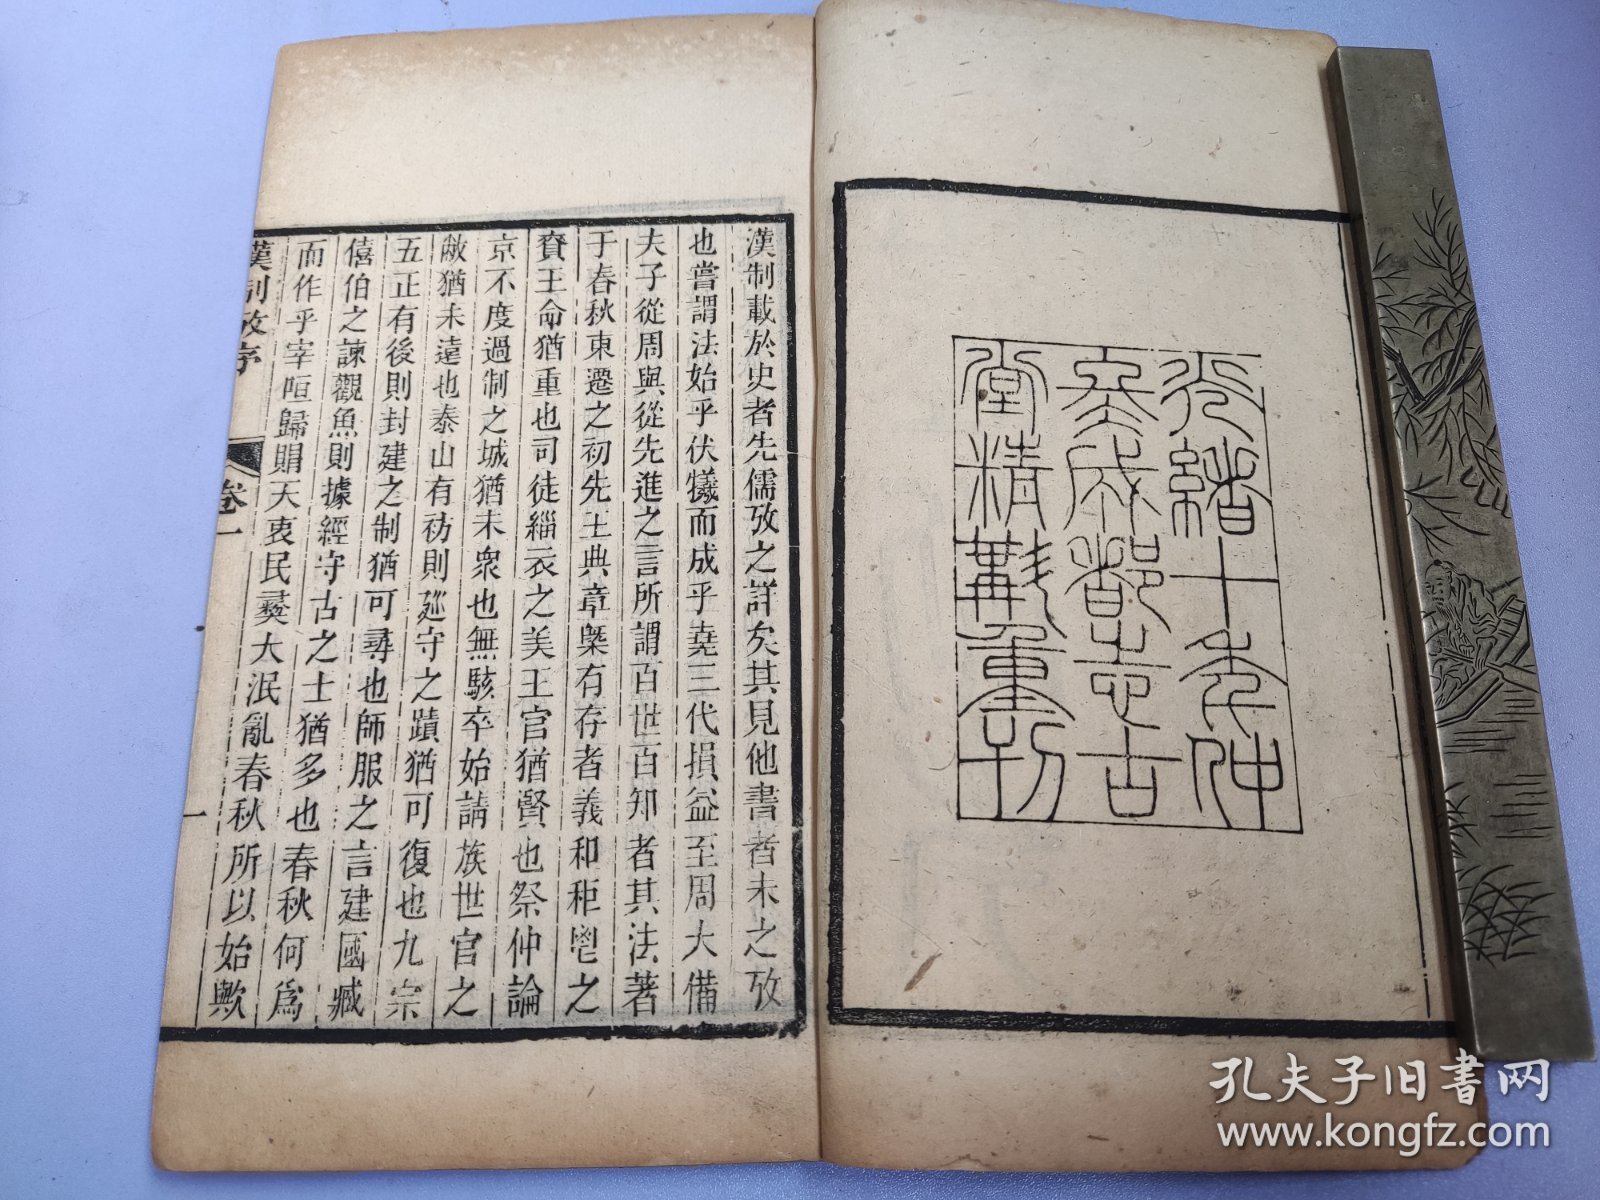 光緒十年仲
冬成都志古
堂精雕重刊
漢制載於史者先儒攷之詳矣其見他書者未之攷
也嘗謂法始乎伏犧而成乎堯三代損益至周大備
夫子從周與從先進之言所謂百世百知者其法著
于春秋東遷之初先王典章槩有存者義和秬鬯之
賚王命猶重也司徒緇衣之美王官猶賢也祭仲論
京不度過制之城猶未衆也無駭卒始請族世官之
敝猶未遠也泰山有祊則廵守之蹟猶可復也九宗
五正有後則封建之制猶可尋也師服之言建國臧
僖伯之諫觀魚則據經守古之士猶多也春秋何爲
而作乎宰咺歸賵天衷民彞大泯亂春秋所以始歟
漢制攷序
卷一
一
孔夫子旧书网
www.kongfz.com